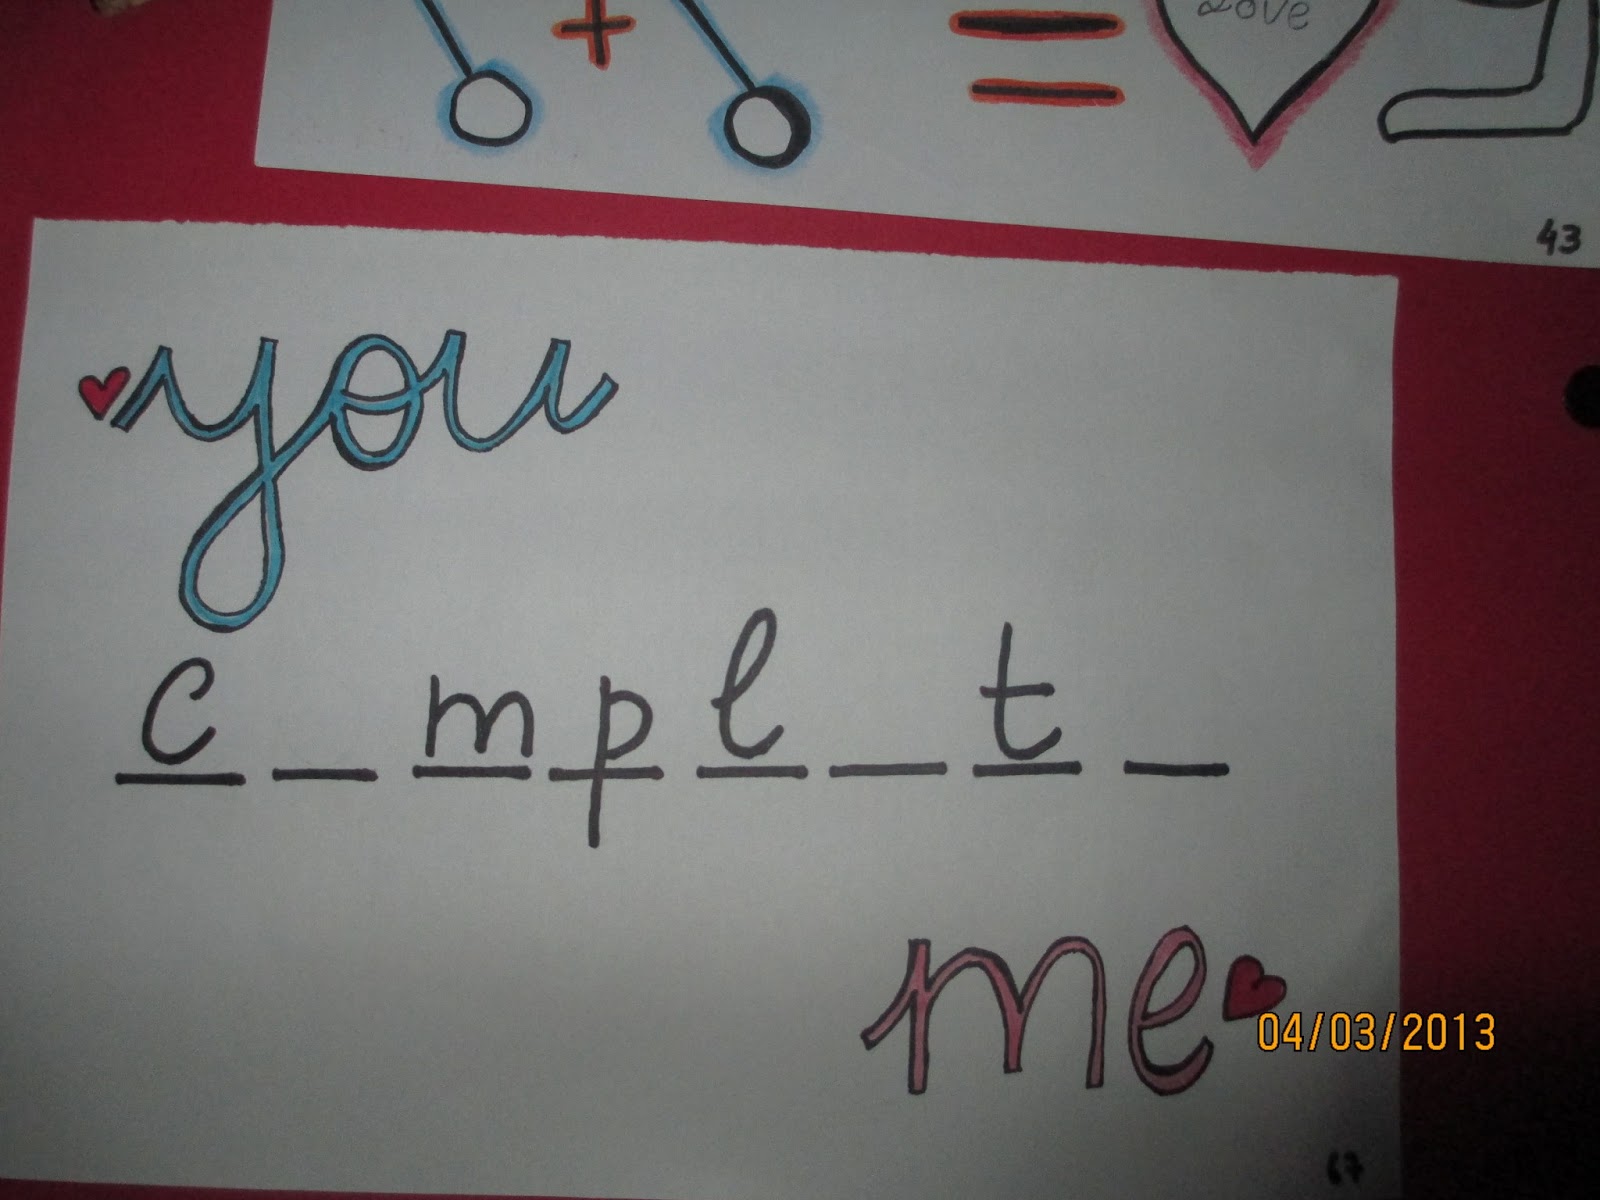 + = Love
43
you
c _ m p l _ t _
me
04/03/2013
67